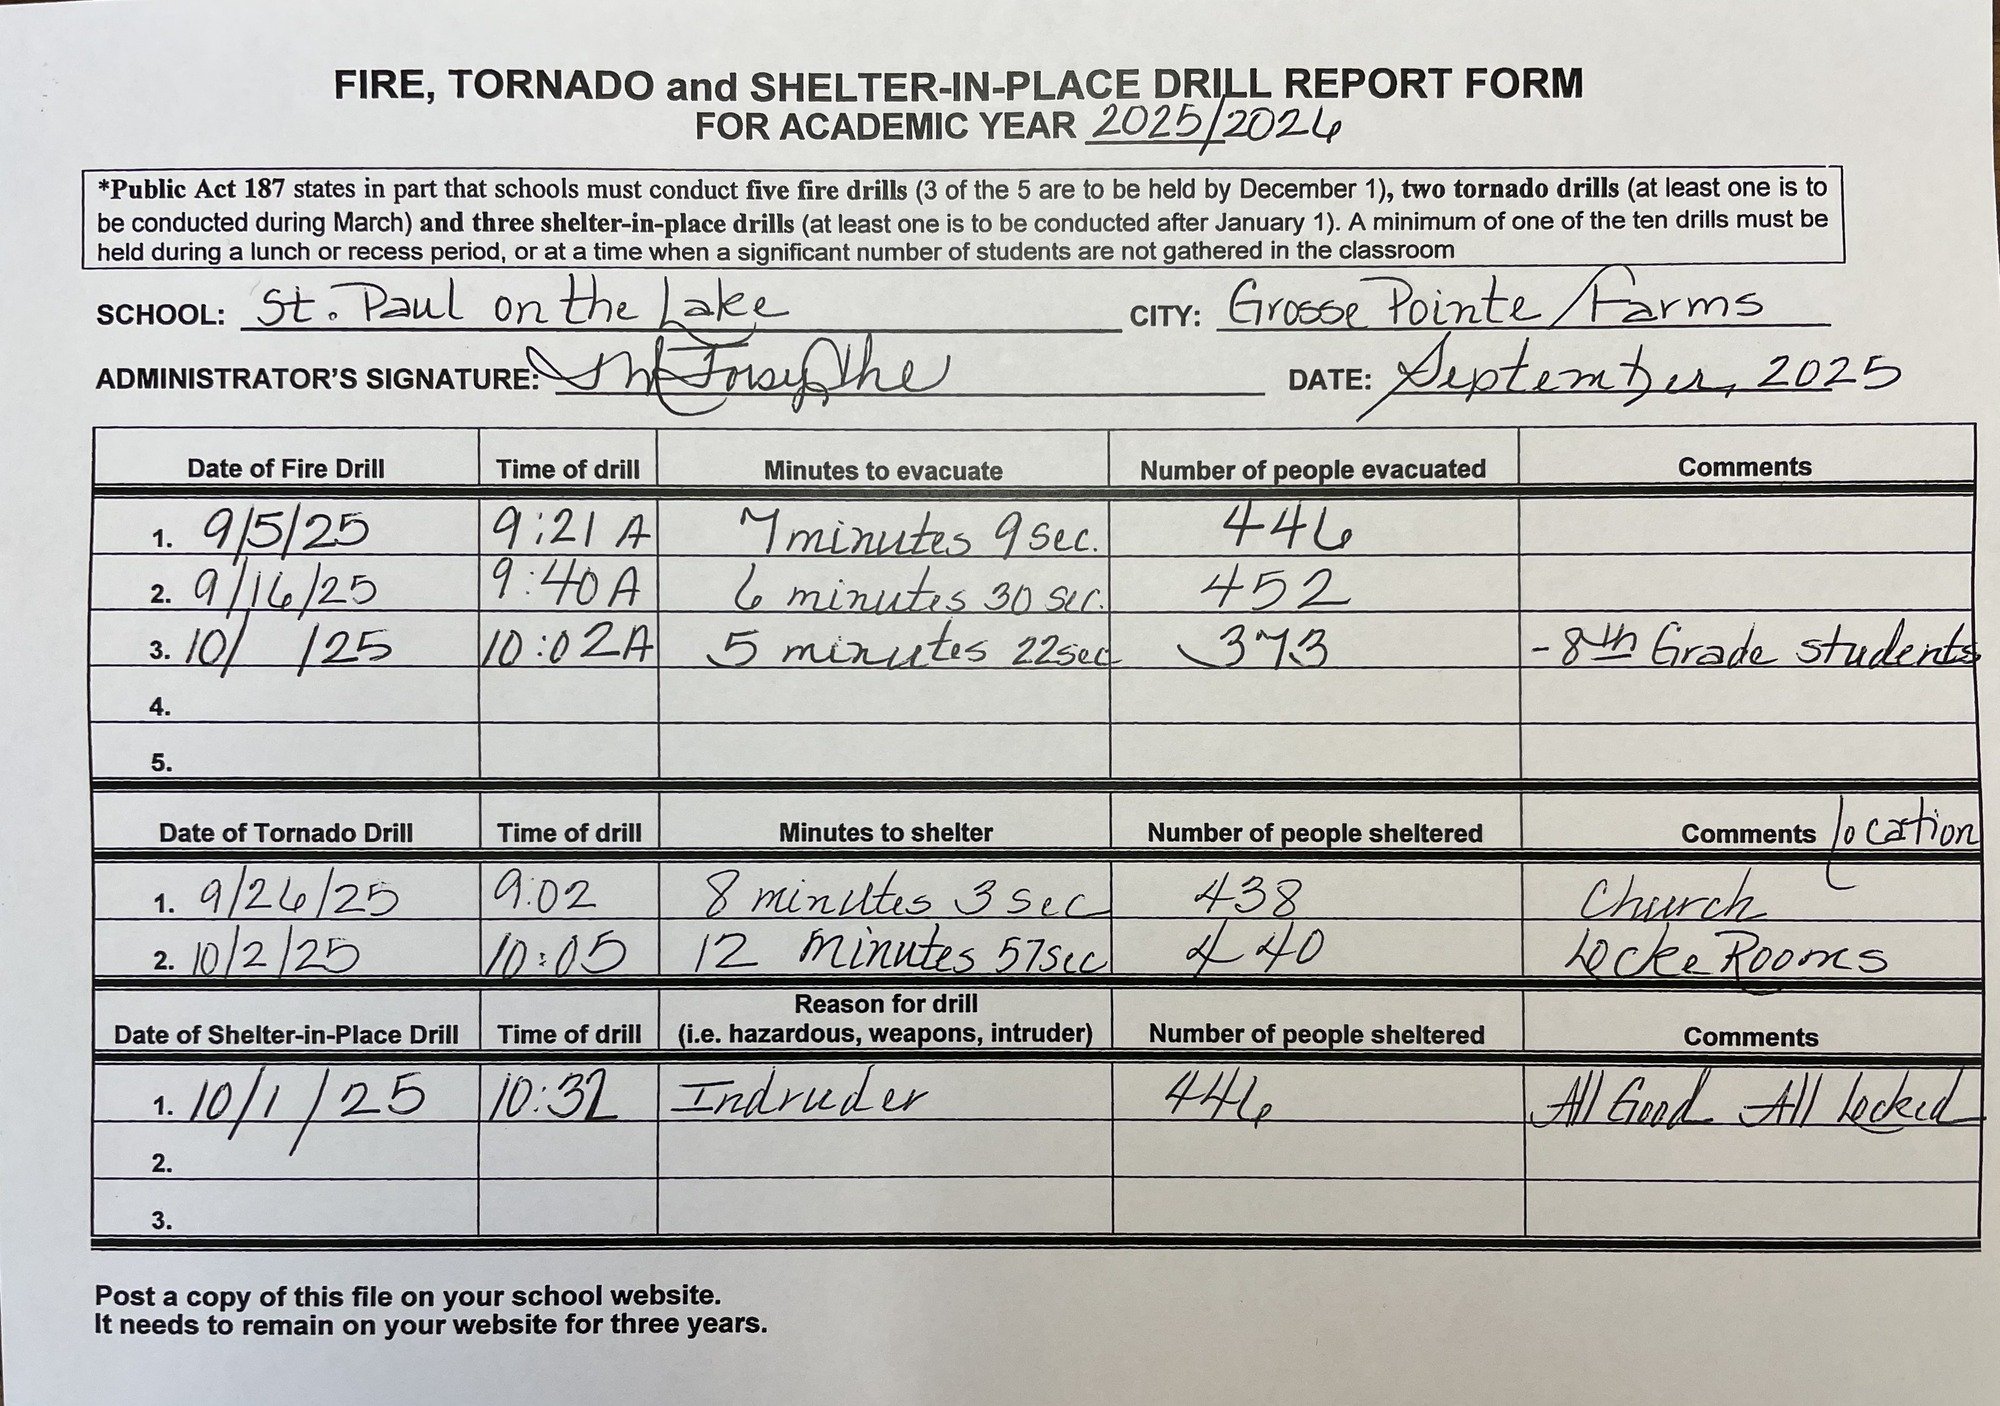 FIRE, TORNADO and SHELTER-IN-PLACE DRILL REPORT FORM
FOR ACADEMIC YEAR 2025/2026
*Public Act 187 states in part that schools must conduct five fire drills (3 of the 5 are to be held by December 1), two tornado drills (at least one is to
be conducted during March) and three shelter-in-place drills (at least one is to be conducted after January 1). A minimum of one of the ten drills must be
held during a lunch or recess period, or at a time when a significant number of students are not gathered in the classroom
SCHOOL: St. Paul on the Lake CITY: Grosse Pointe/Farms
ADMINISTRATOR'S SIGNATURE: Forsythe DATE: September, 2025
Date of Fire Drill Time of drill Minutes to evacuate Number of people evacuated Comments
1. 9/5/25 9:21 A 7 minutes 9 sec. 446
2. 9/16/25 9:40 A 6 minutes 30 sec. 452
3. 10/ /25 10:02A 5 minutes 22sec 373 -8th Grade students
4.
5.
Date of Tornado Drill Time of drill Minutes to shelter Number of people sheltered Comments location
1. 9/26/25 9:02 8 minutes 3 sec 438 Church
2. 10/2/25 10:05 12 minutes 57sec 440 Locke Rooms
Reason for drill
Date of Shelter-in-Place Drill Time of drill (i.e. hazardous, weapons, intruder) Number of people sheltered Comments
1. 10/1/25 10:32 Indruder 446 All Good All Locked
2.
3.
Post a copy of this file on your school website.
It needs to remain on your website for three years.